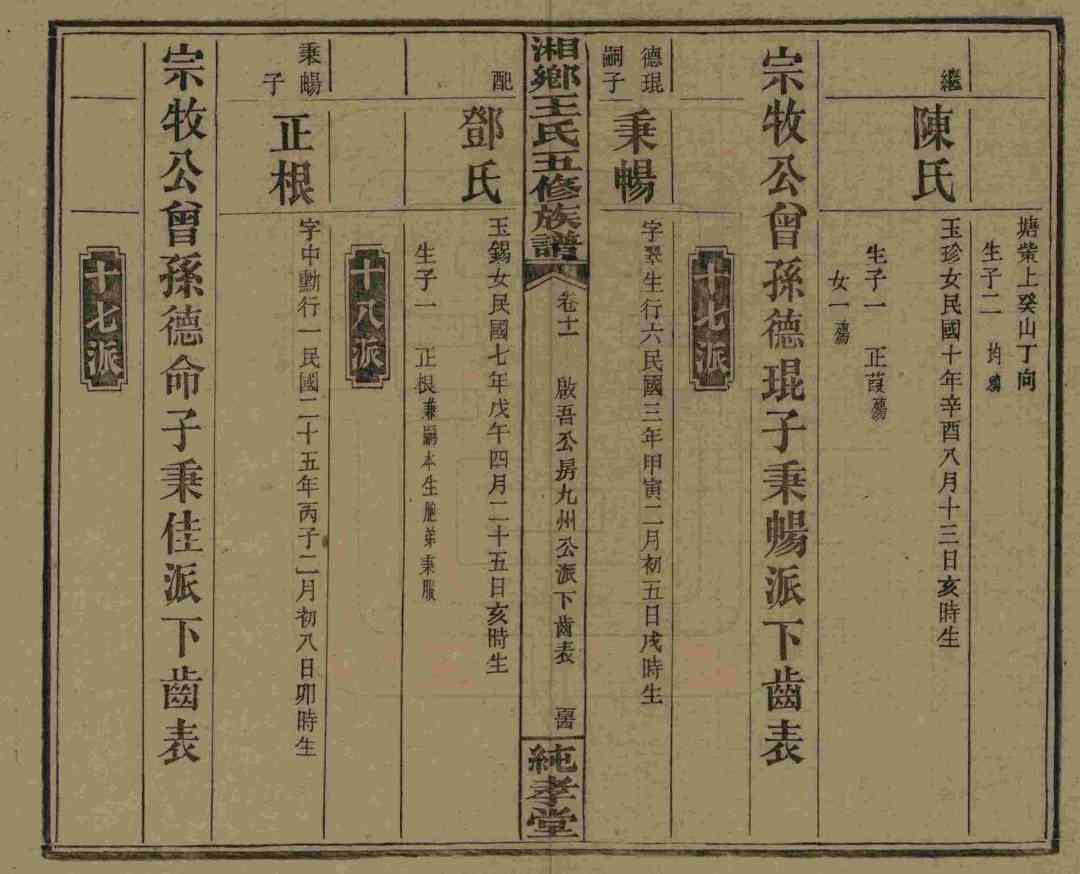 塘柴上癸山丁向
生子二 均殤
繼
陳氏
玉珍女民國十年辛酉八月十三日亥時生
生子一 正葭殤
女一殤
宗牧公曾孫德琨子秉暢派下齒表
十七派
德琨
嗣子
秉暢
字翠生行六民國三年甲寅二月初五日戌時生
湘鄉王氏五修族譜
卷十一
啟吾公房九州公派下齒表
純孝堂
配
鄧氏
玉錫女民國七年戊午四月二十五日亥時生
生子一 正根兼嗣本生胞弟秉服
十八派
秉暢
子
正根
字中勳行一民國二十五年丙子二月初八日卯時生
宗牧公曾孫德命子秉佳派下齒表
十七派